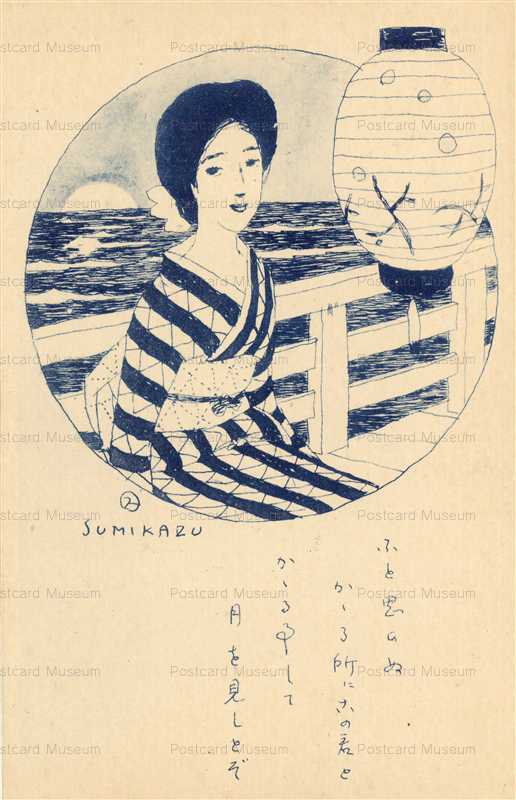 Postcard Museum
SUMIKAZU
ふと思ひぬ
かゝる所にこの君と
かゝる事して
月を見しとぞ